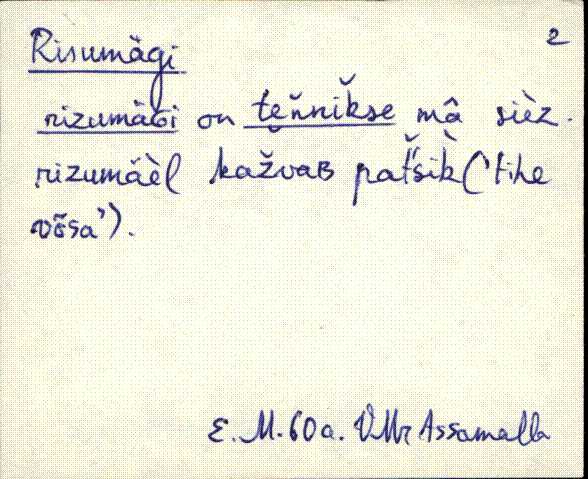 2
Risumägi
rizumäGi on teňnikse mâ sièz.
rizumäèl kažvaB paťšik ('tihe
võsa').
E. M. 60a. VMr Assamalla